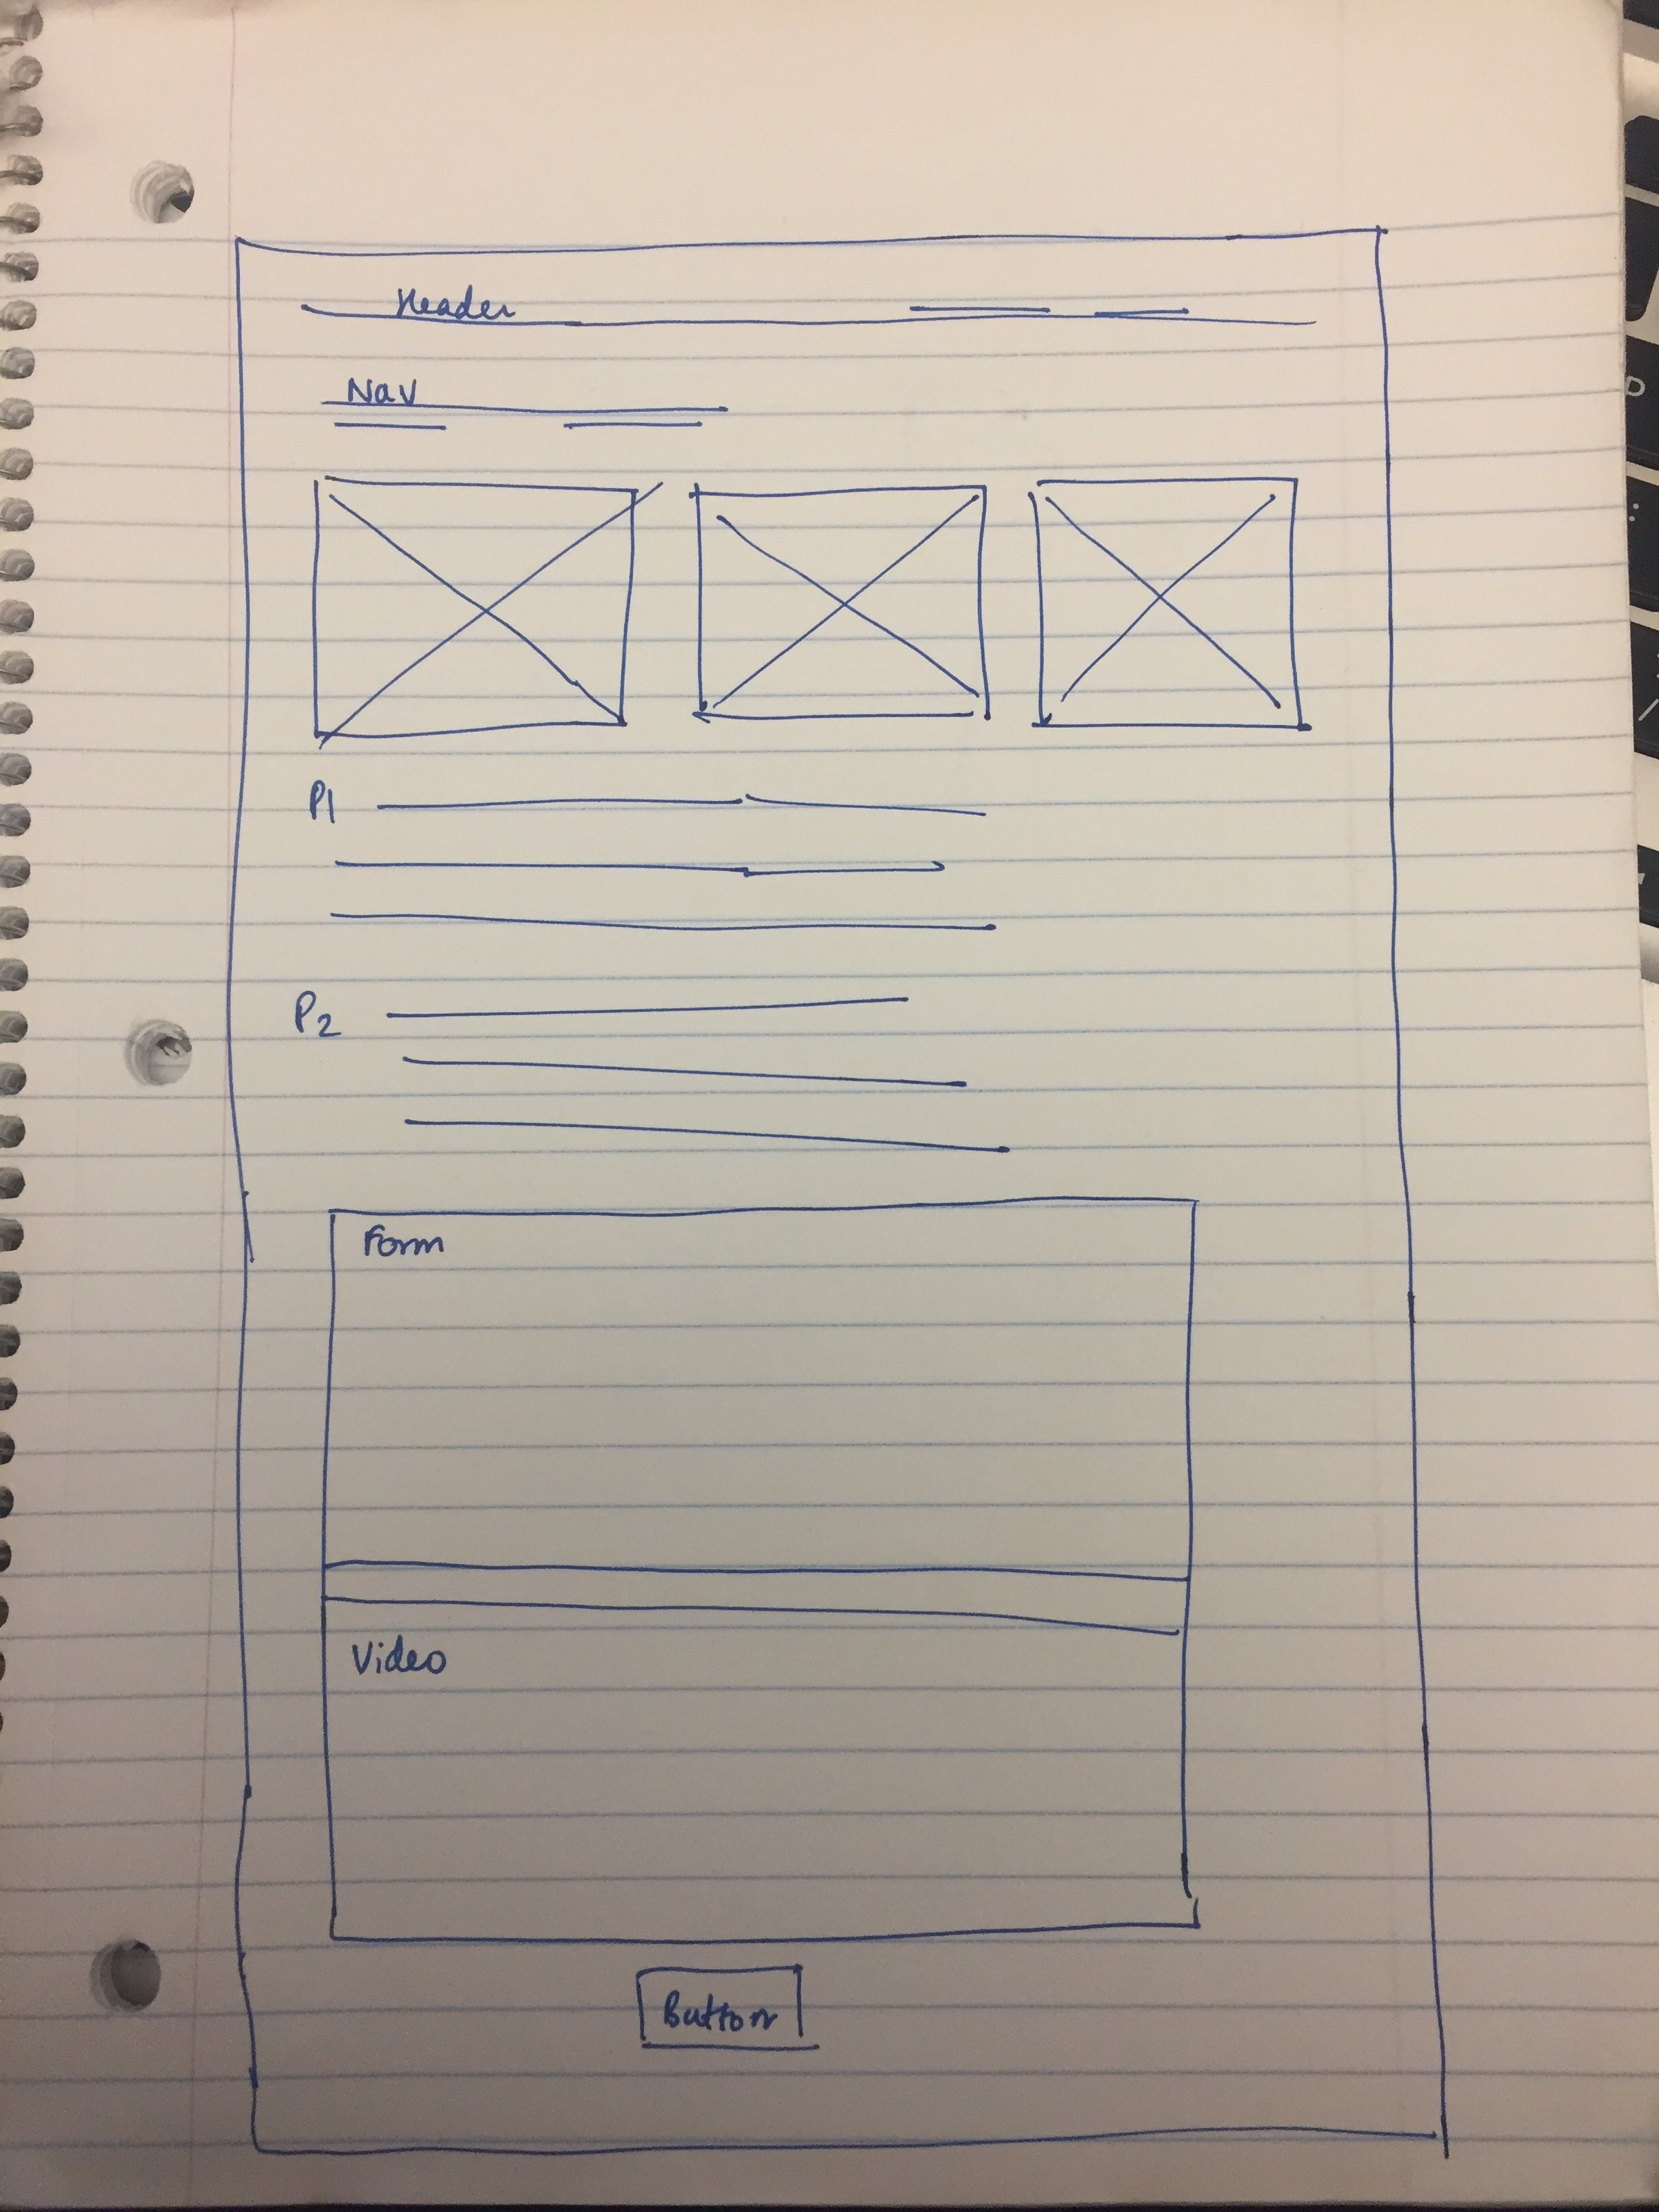 Header
Nav
P1
P2
Form
Video
Button